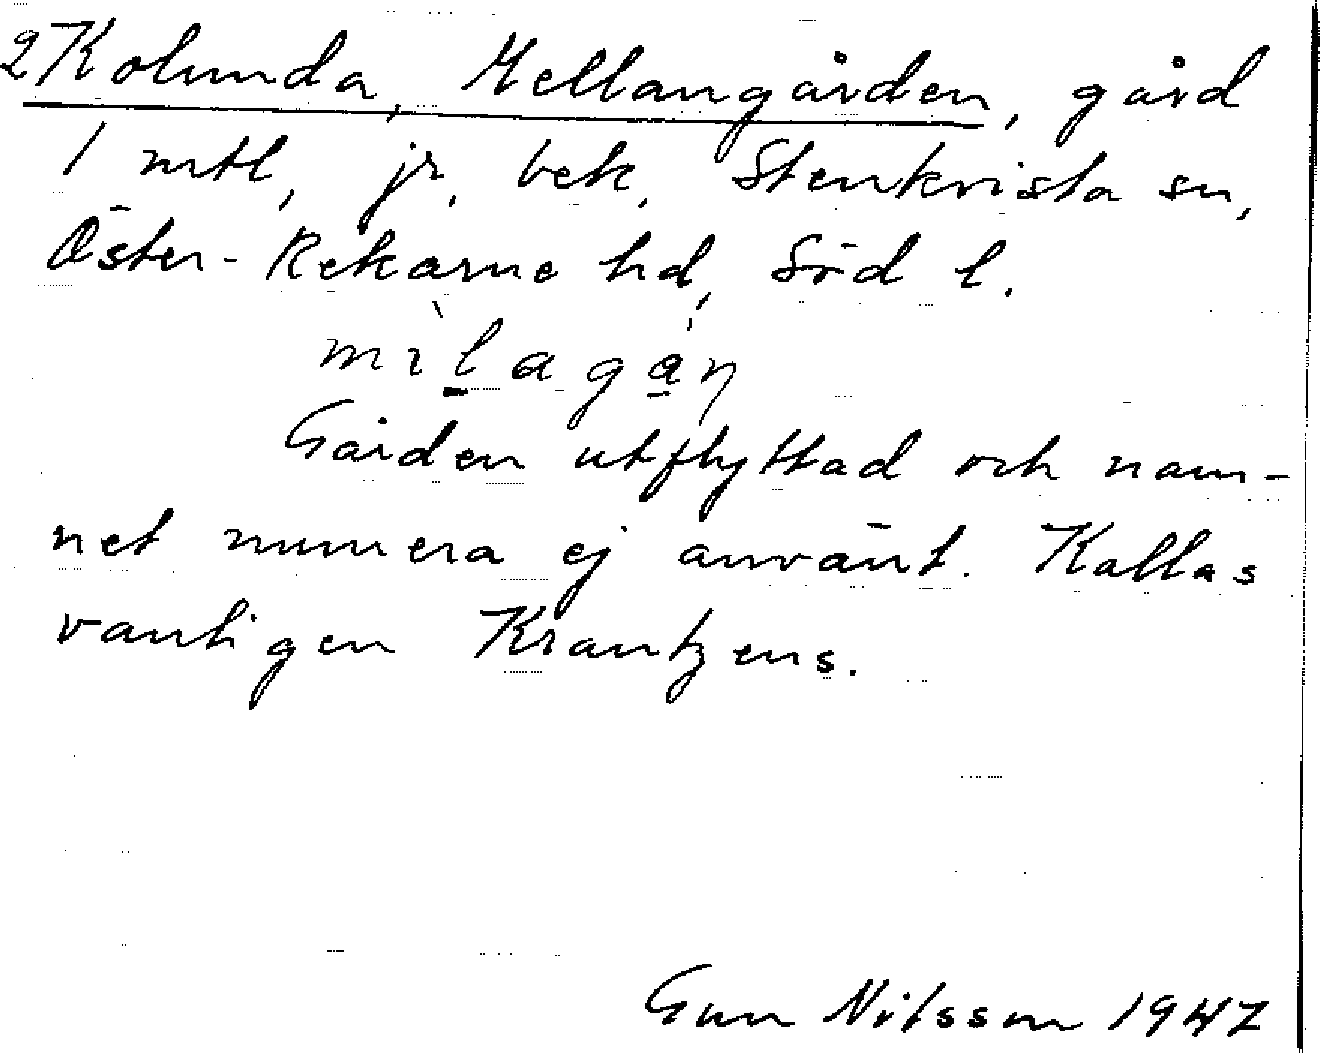 2 Kolunda, Mellangården, gård
1 mtl, jr, bek, Stenkvista sn,
Öster-Rekarne hd, Söd l.
mìlagán
Gården utflyttad och nam-
net numera ej använt. Kallas
vanligen Krantzens.
Gun Nilsson 1947